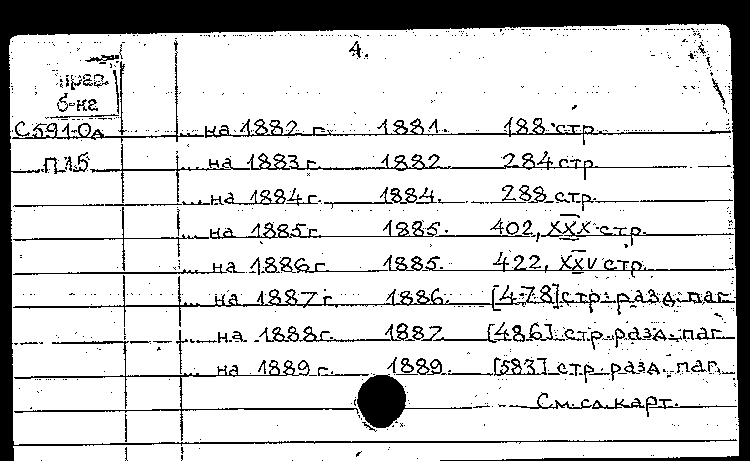 4.
прав.
б-ка
С591-0а ... на 1882 г. 1881. 188 стр.
П15 ... на 1883 г. 1882. 284 стр.
... на 1884 г. 1884. 288 стр.
... на 1885 г. 1885. 402, XXX стр.
... на 1886 г. 1885. 422, XXV стр.
... на 1887 г. 1886. [478] стр. разд. паг.
... на 1888 г. 1887. [486] стр. разд. паг.
... на 1889 г. 1889. [583] стр. разд. паг.
См. сл. карт.